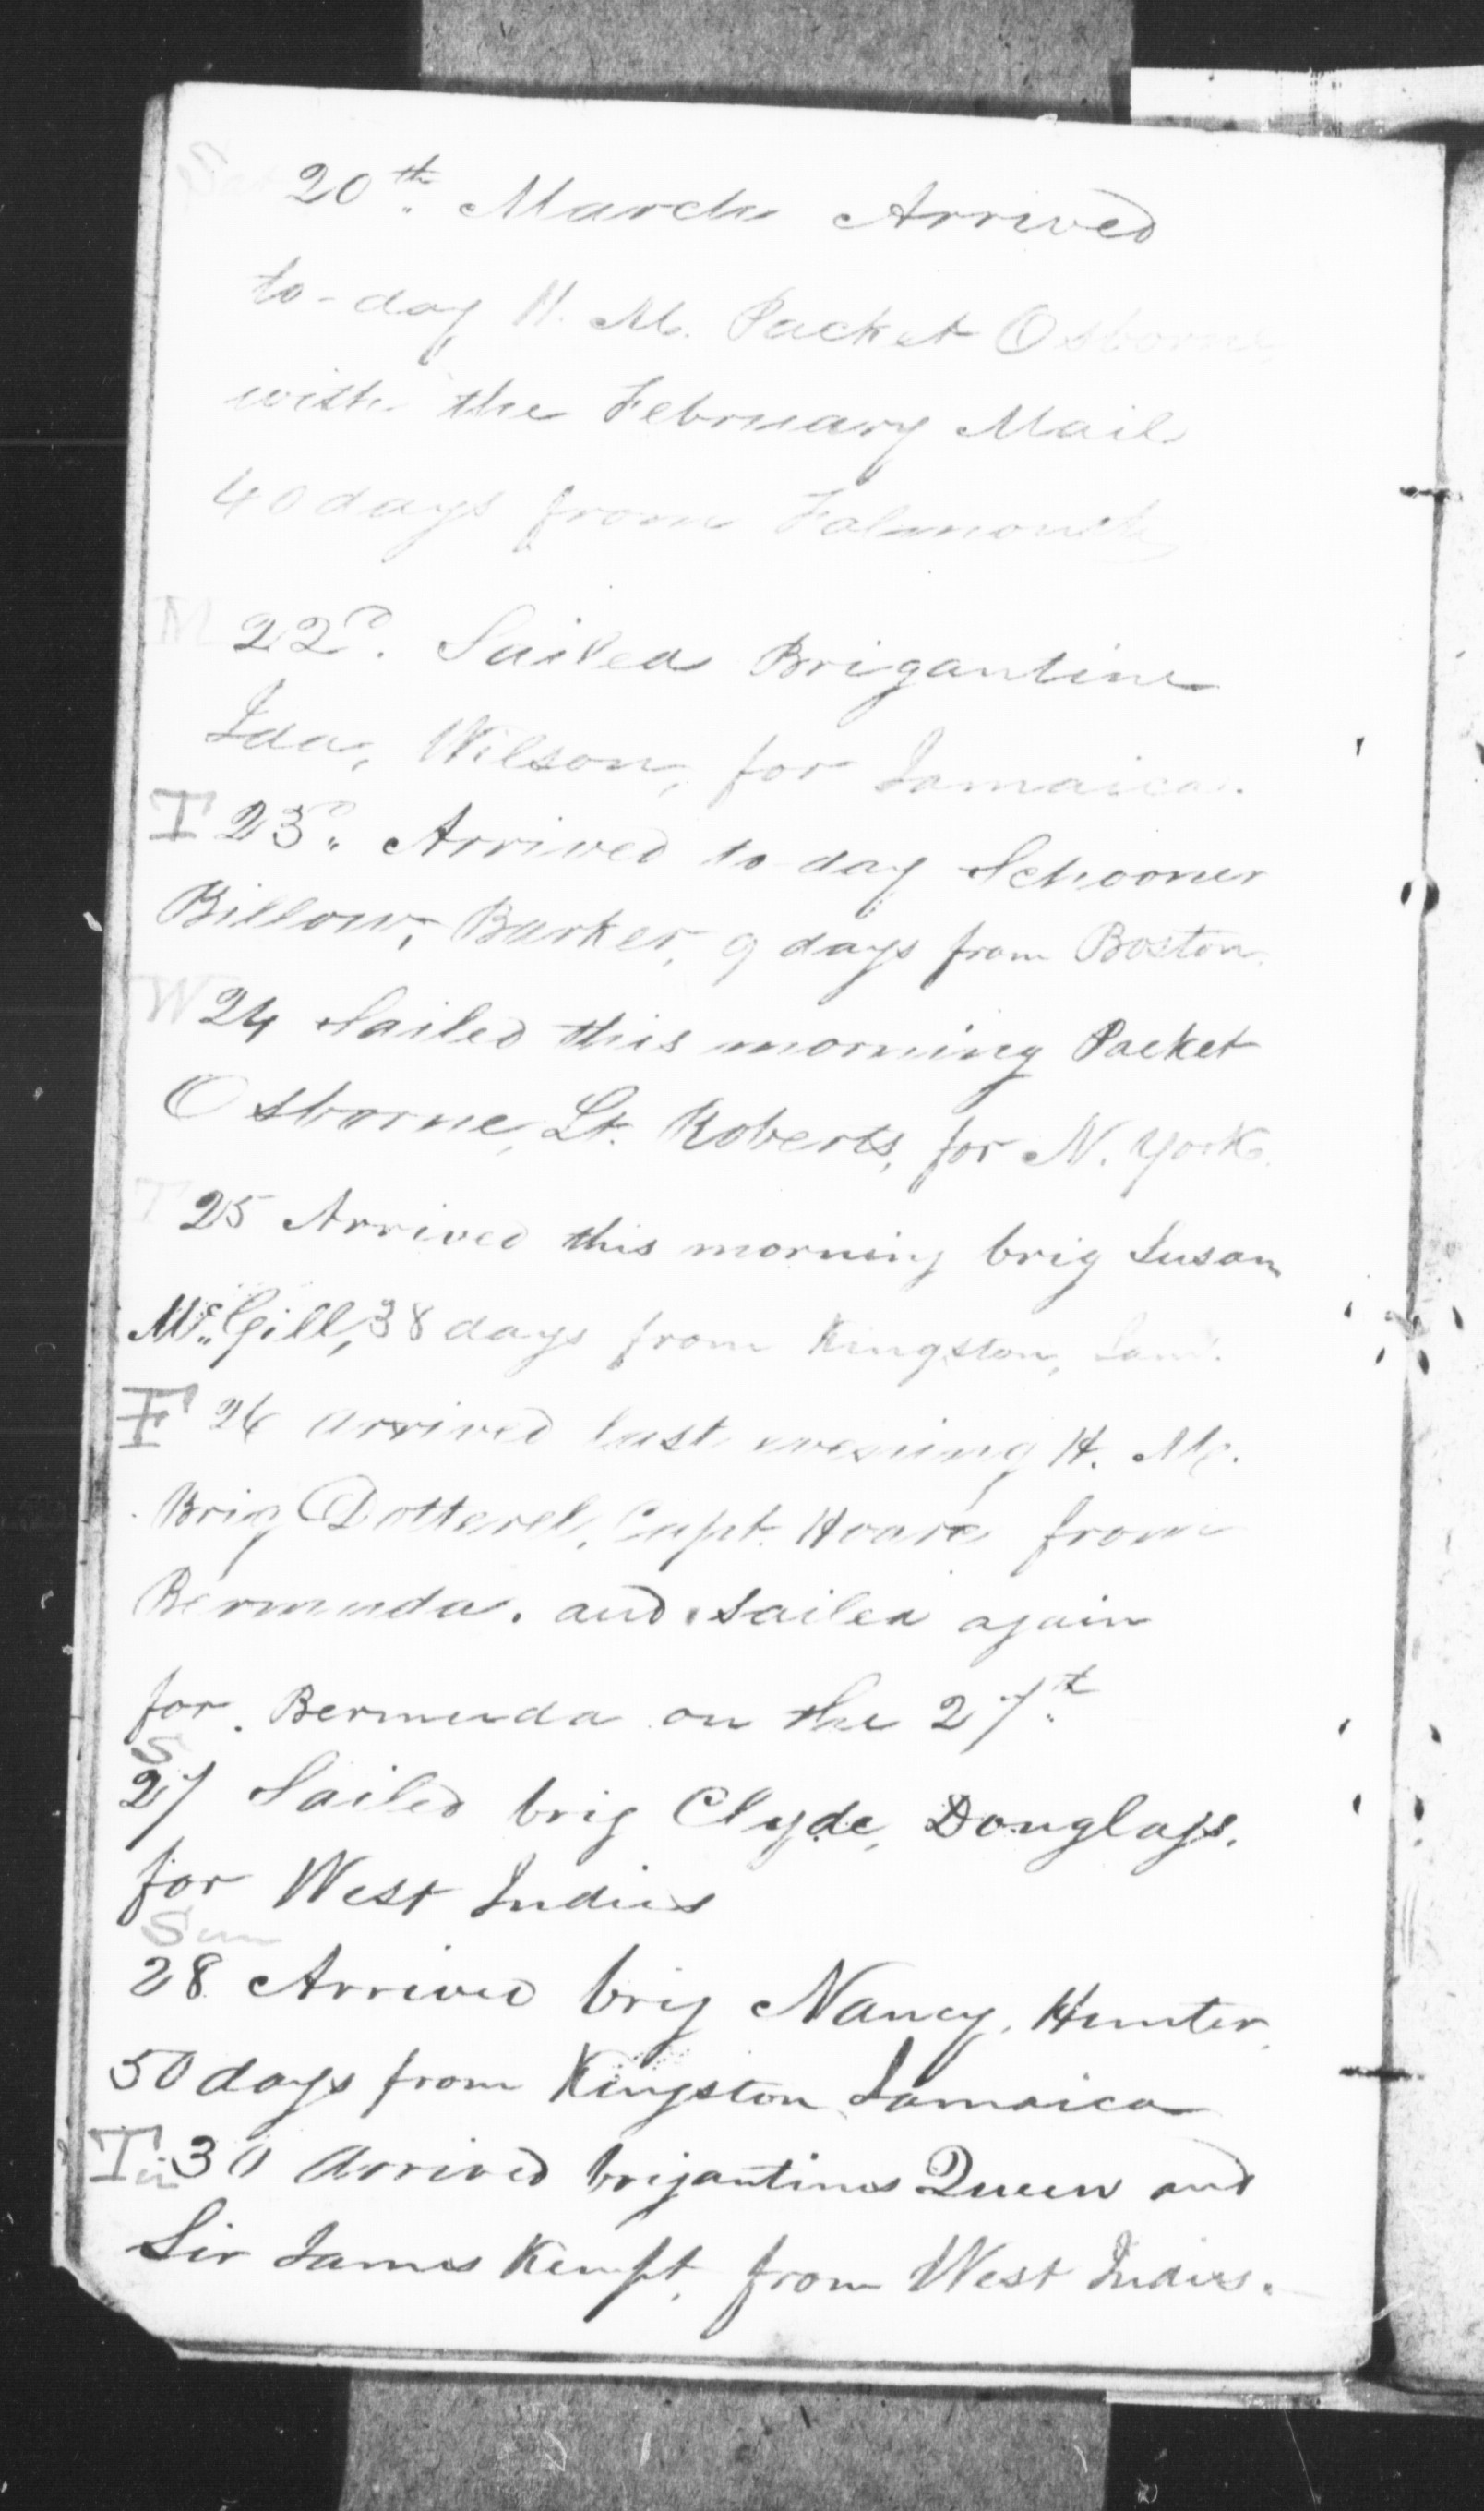 Sat 20th. March Arrived
to-day H. M. Packet Osborne
with the February Mail
40 days from Falmouth
M 22d. Sailed Brigantine
Ida, Wilson, for Jamaica.
T 23d. Arrived to-day Schooner
Billow, Barker, 9 days from Boston.
W 24 Sailed this morning Packet
Osborne, Lt. Roberts, for N. York.
T 25 Arrived this morning brig Susan
Mc. Gill, 38 days from Kingston, Jam.
F 26 arrived last evening H. M.
Brig Dotterel, Capt. Hoare from
Bermuda. and sailed again
for Bermuda on the 27th
S
27 Sailed brig Clyde, Douglass.
for West Indies
Sun
28 Arrived brig Nancy, Hunter,
50 days from Kingston Jamaica
Tu 30 Arrived brigantines Queen and
Sir James Kempt, from West Indies.